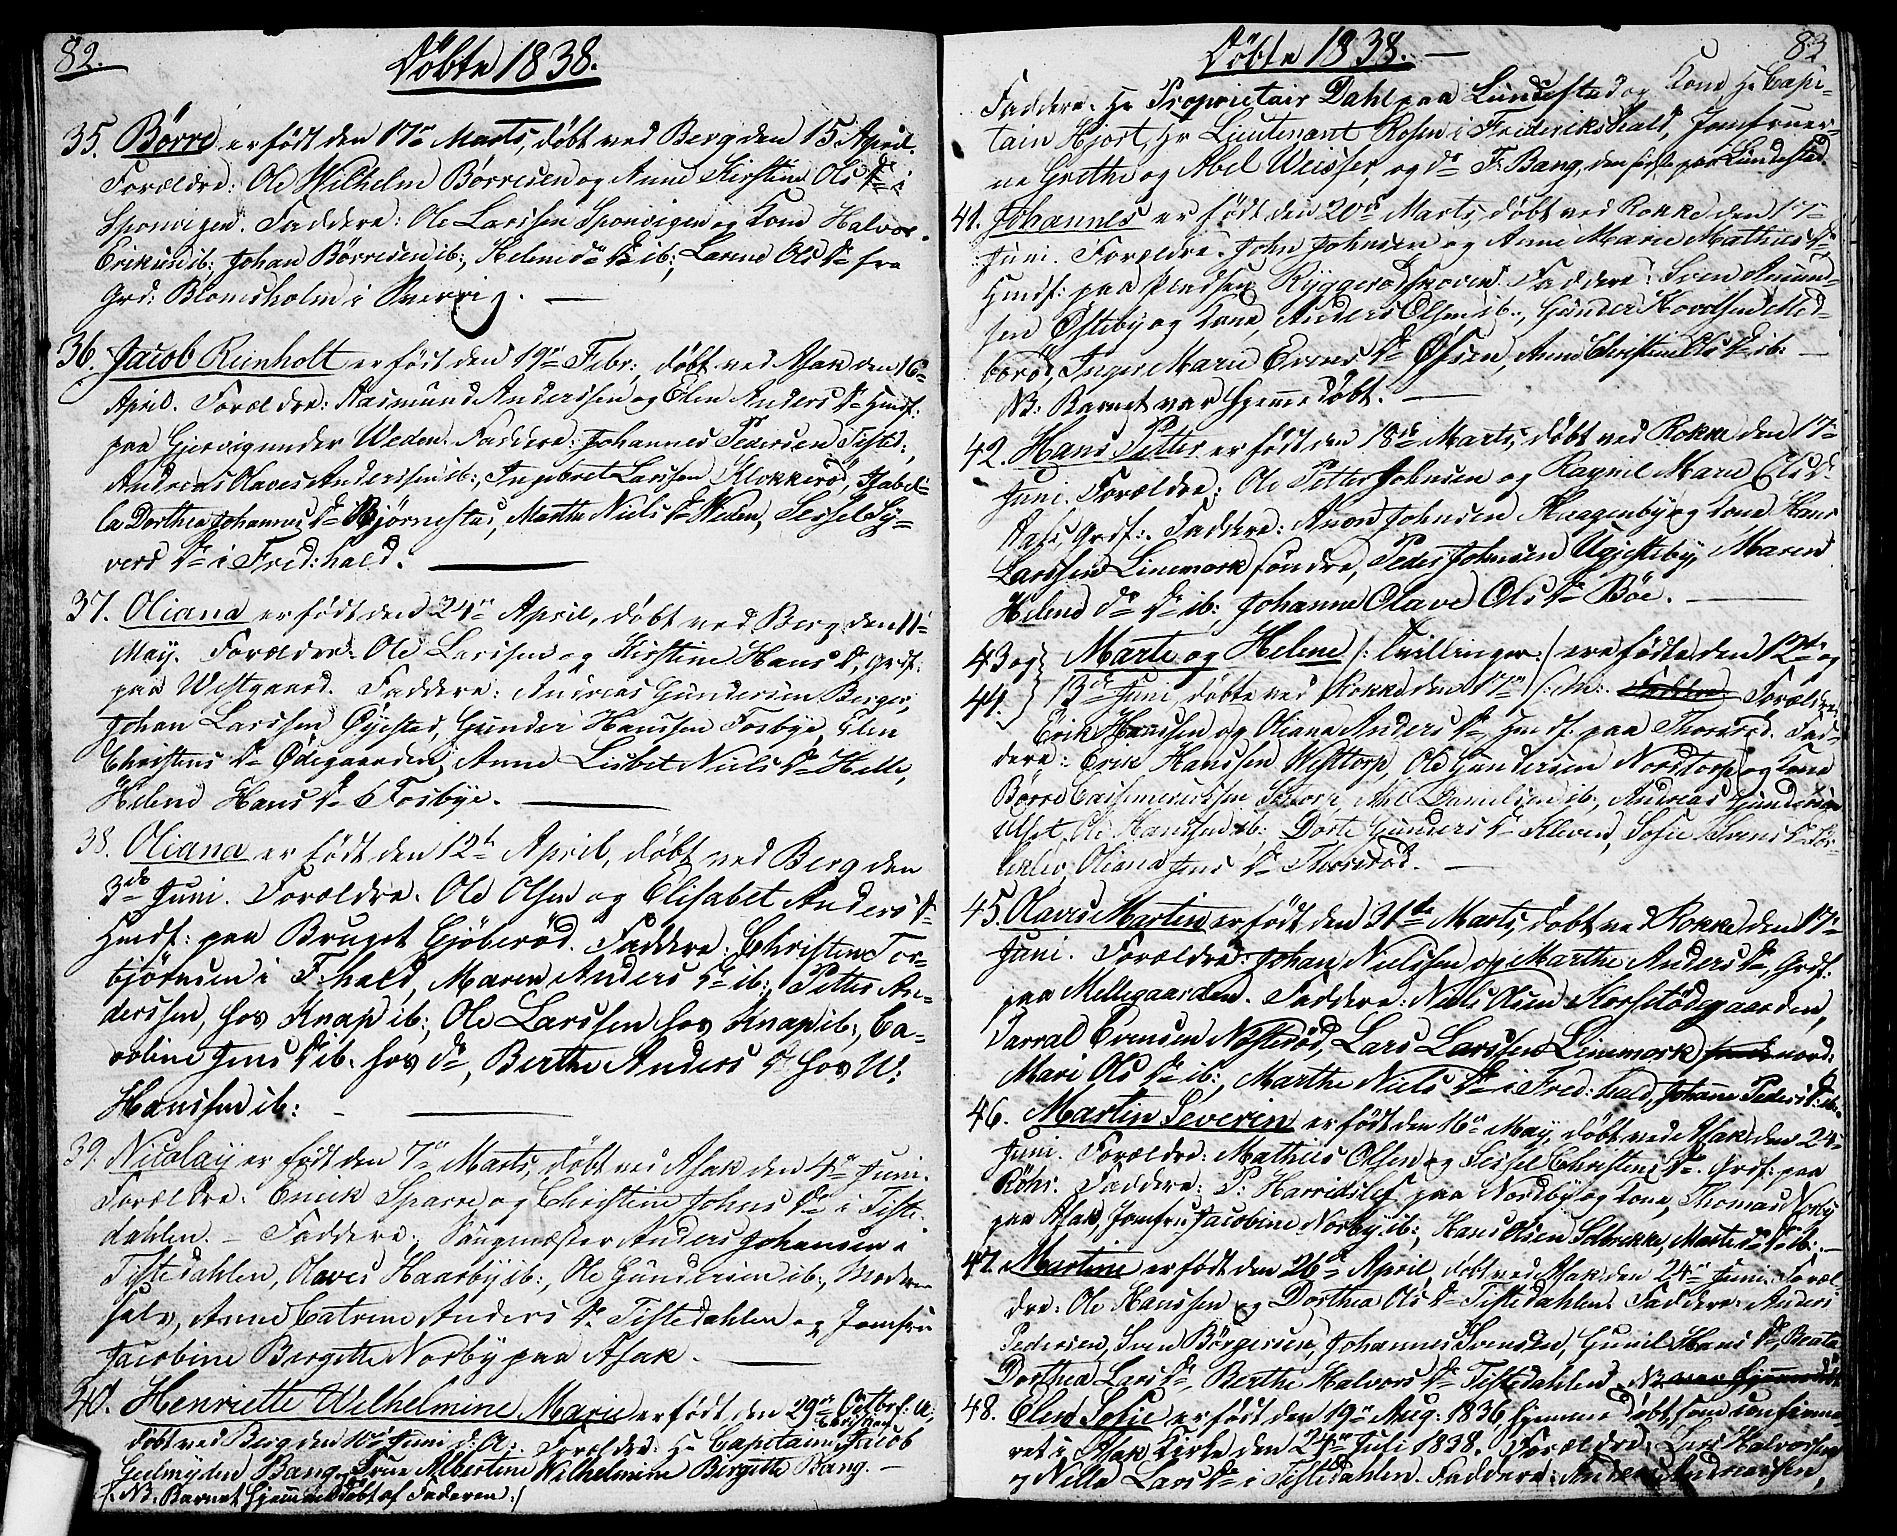 82.
Döbte 1838.
35. Börre er født den 17de Marts, døbt ved Berg den 15 April.
Forældre: Ole Wilhelm Börresen og Anne Kirstine Ols Dr i
Sponvigen. Faddere: Ole Larssen Sponvigen og Kone Halvor
Eriksen ib:, Johan Börresen ib:, Helene do Dr ib:, Larene Ols Dr fra
Grd: Blomsholm i Sverrig.
36. Jacob Reinholt er født den 19de Febr:, døbt ved Asak den 16de
April. Forældre: Rasmund Anderssen og Elen Anders Dr Hmdf:
paa Gjervig under Weden. Faddere: Johannes Pedersen Tisted:,
Andreas Olaves Anderssen ib:, Ingebret Larssen Klokkerød, Isabel-
la Dorthea Johannes Dr Bjørnestad, Marthe Niels Dr Weden, Sessel Sy-
vers Dr i Fred:hald.
37. Oliana er født den 24de April, døbt ved Berg den 11te
May. Forældre: Ole Larssen og Kirstine Hans Dr, Grdf:
paa Westgaard. Faddere: Andreas Gundersen Berger,
Johan Larssen Øyestad, Gunder Hanssen Fosbye, Elen
Christens Dr Ødegaarden, Anne Lisbet Niels Dr Helle,
Helene Hans Dr Fosbye.
38. Oliana er født den 12te April, døbt ved Berg den
3die Juni. Forældre: Ole Olsen og Elisabet Anders Dr
Hmdf: paa Bruget Gjöberöd. Faddere: Christen Tor-
björnsen i F:hald, Maren Anders Dr ib:, Petter An-
derssen, hos Knap ib:, Ole Larssen hos Knap ib:, Ca-
roline Jens Dr ib: hos do, Berthe Anders Dr hos W:
Hanssen ib:
39. Nicolay er født den 7de Marts, døbt ved Asak den 4de Juni.
Forældre: Enick Sparre og Christine Johns Dr i Tiste-
dahlen. – Faddere: Saugmester Anders Johansen i
Tistedahlen, Olaves Haarby ib:, Ole Gundersen ib:, Moderen
selv, Anne Catrine Anders Dr Tistedahlen og Jomfru
Jacobine Bergitte Norby paa Asak.
40. Henriette Wilhelmine Marie er født den 29de Octbr: f: A:
døbt ved Berg den 10de Juni d: A:. Forældre: Hr Capitain Jacob
Geelmyden Bang, Frue Albertine Wilhelmine Birgitte Bang. –
/: NB. Barnet hjemmedøbt af Faderen :/
83
Döbte 1838. –
Faddere: Hr Proprietair Dahl paa Lundestad og Kone Hr Capi-
tain Hjort, Hr Lieutenant Rosen i Friderikshald, Jomfruer-
ne Grethe og Abel Weisser, og do F: Bang, den sidste paa Lundestad.
41. Johannes er født den 20de Marts, døbt ved Rokke den 17de
Juni. Forældre: John Johnsen og Anne Marie Mathies Dr
Hmdf: paa Pladsen Ryggerødskoven. Faddere: Sven Amund-
sen Østeby og Kone, Anders Olsen ib:, Gunder Hovelsen Med-
borød, Inger Marie Evens Dr Olsen, Anne Christine Ols Dr ib: –
NB: Barnet var hjemmedøbt. –
42. Hans Petter er født den 18de Marts, døbt ved Rokke den 17de
Juni. Forældre: Ole Petter Johnsen og Ragnil Marie Ols Dr
Aase, Grdf:. Faddere: Anon Johnsen Haagenby og Kone Hans
Larssen Linemork söndre, Peder Johnsen Ugjesteby, Maren
Helene do Dr ib:, Johanne Olave Ols Dr Böe. –
43 og } Marte og Helene /: Tvillinger :/ ere fødte den 12te og
44. } 13de Juni, døbte ved Rokke den 17de s: M:. Faddere: Forældre:
Erik Hanssen og Oliana Anders Dr Hmdf. paa Thorerød. Fad-
dere: Erik Hanssen Westtorp, Ole Gundersen Nordtorp og Kone
Börre Casimerussen Istorp, Nils Danielsen ib:, Andreas Gundersen
Ulset, Ole Hanssen ib:, Dorte Gunders Dr Kleven, Sofie Svens Dr Tor-
Oliana Jens Dr Thorerød. –
45. Olaves Martin er født den 31te Marts, døbt ved Rokke den 17de
Juni. Forældre: Johan Nielssen og Marthe Anders Dr, Grdf:
paa Mellegaarden. Faddere: Niels Olsen Korsetödegaarden,
Tarral Evensen Nösteröd, Lars Larssen Linemork nord:
Mari Ols Dr ib:, Marthe Niels Dr i Fred:hald, Johanne Peders Dr ib:
46. Martin Severin er født den 16de May, døbt ved Asak den 24de
Juni. Forældre: Mathies Olsen og Sessel Christens Dr. Grdf: paa
Röhr. Faddere: P: Harridslef paa Nordby og Kone, Thomas Norby
paa Asak, Jomfru Jacobine Norby ib:, Hans Olsen Solbrekke, Marte do Dr ib: –
47. Martine er født den 26de April, døbt ved Asak den 24de Juni. Foræl-
dre: Ole Hanssen og Dorthea Ols Dr Tistedahlen. Faddere: Anders
Pedersen, Sven Börgersen, Johannes Svensen, Gunil Hans Dr, Beata
Dorthea Lars Dr, Berthe Halvors Dr Tistedahlen. NB. var hjemmedøbt
48. Elen Sofie er født den 19de Aug: 1836, hjemmedøbt, som confirme-
ret i Asak Kirke den 24de Juli 1838. Forældre: Lars Halvorssen
og Nille Lars Dr i Tistedahlen. Faddere: Anders Andreassen,